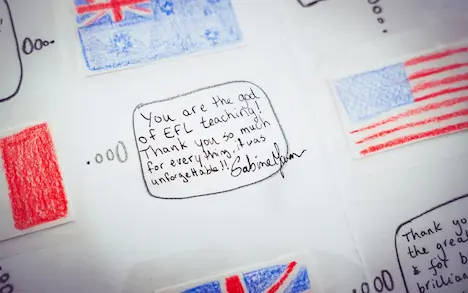 You are the god
of EFL teaching!
Thank you so much
for everything, it was
unforgettable!! Sabine
Thank yo
the grea
& for b
brillia